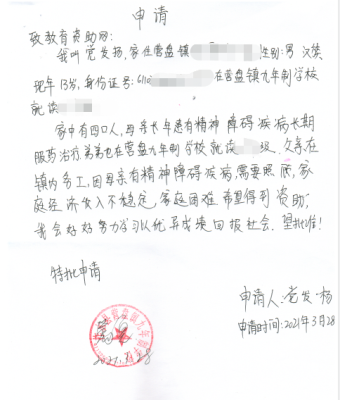 申请
致教育资助网：
我叫党发扬，家住营盘镇 性别：男 汉族
现年13岁，身份证号：6110 在营盘镇九年制学校
就读
家中有四口人，母亲长年患有精神障碍疾病长期
服药治疗，弟弟也在营盘九年制学校就读 级。父亲在
镇内务工，因母亲有精神障碍疾病需要照顾，家
庭经济收入不稳定，家庭困难希望得到资助，
我会好好努力学习以优异成绩回报社会。望批准！
特批申请
申请人：党发扬
申请时间：2021年3月28
2021.3.28